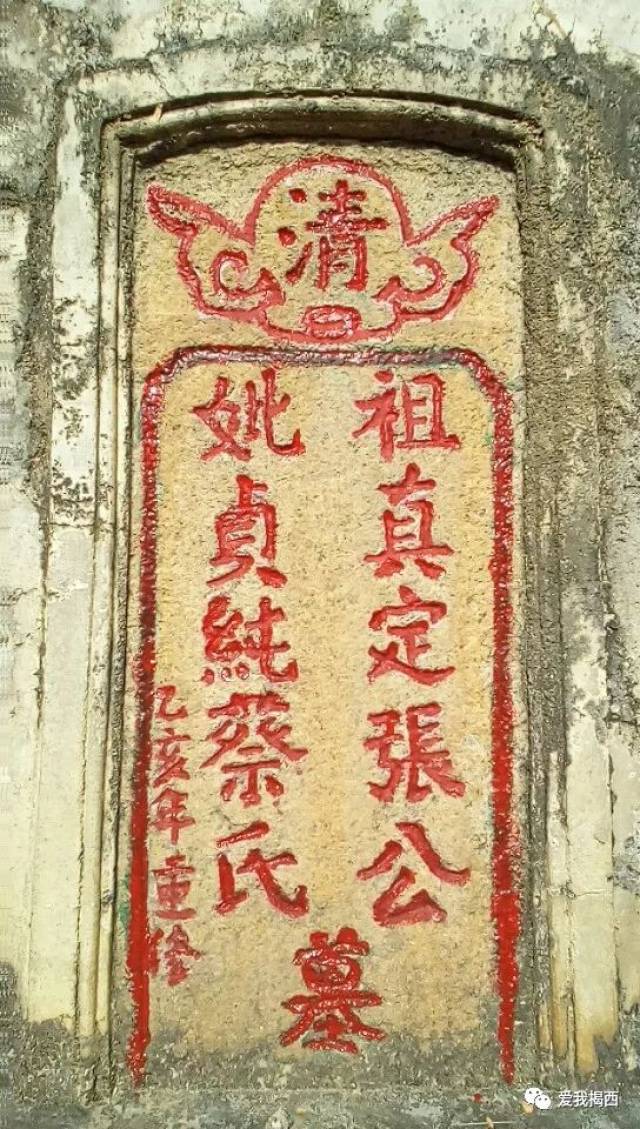 清
祖真定張公
妣貞純蔡氏
墓
乙亥年重修
爱我揭西